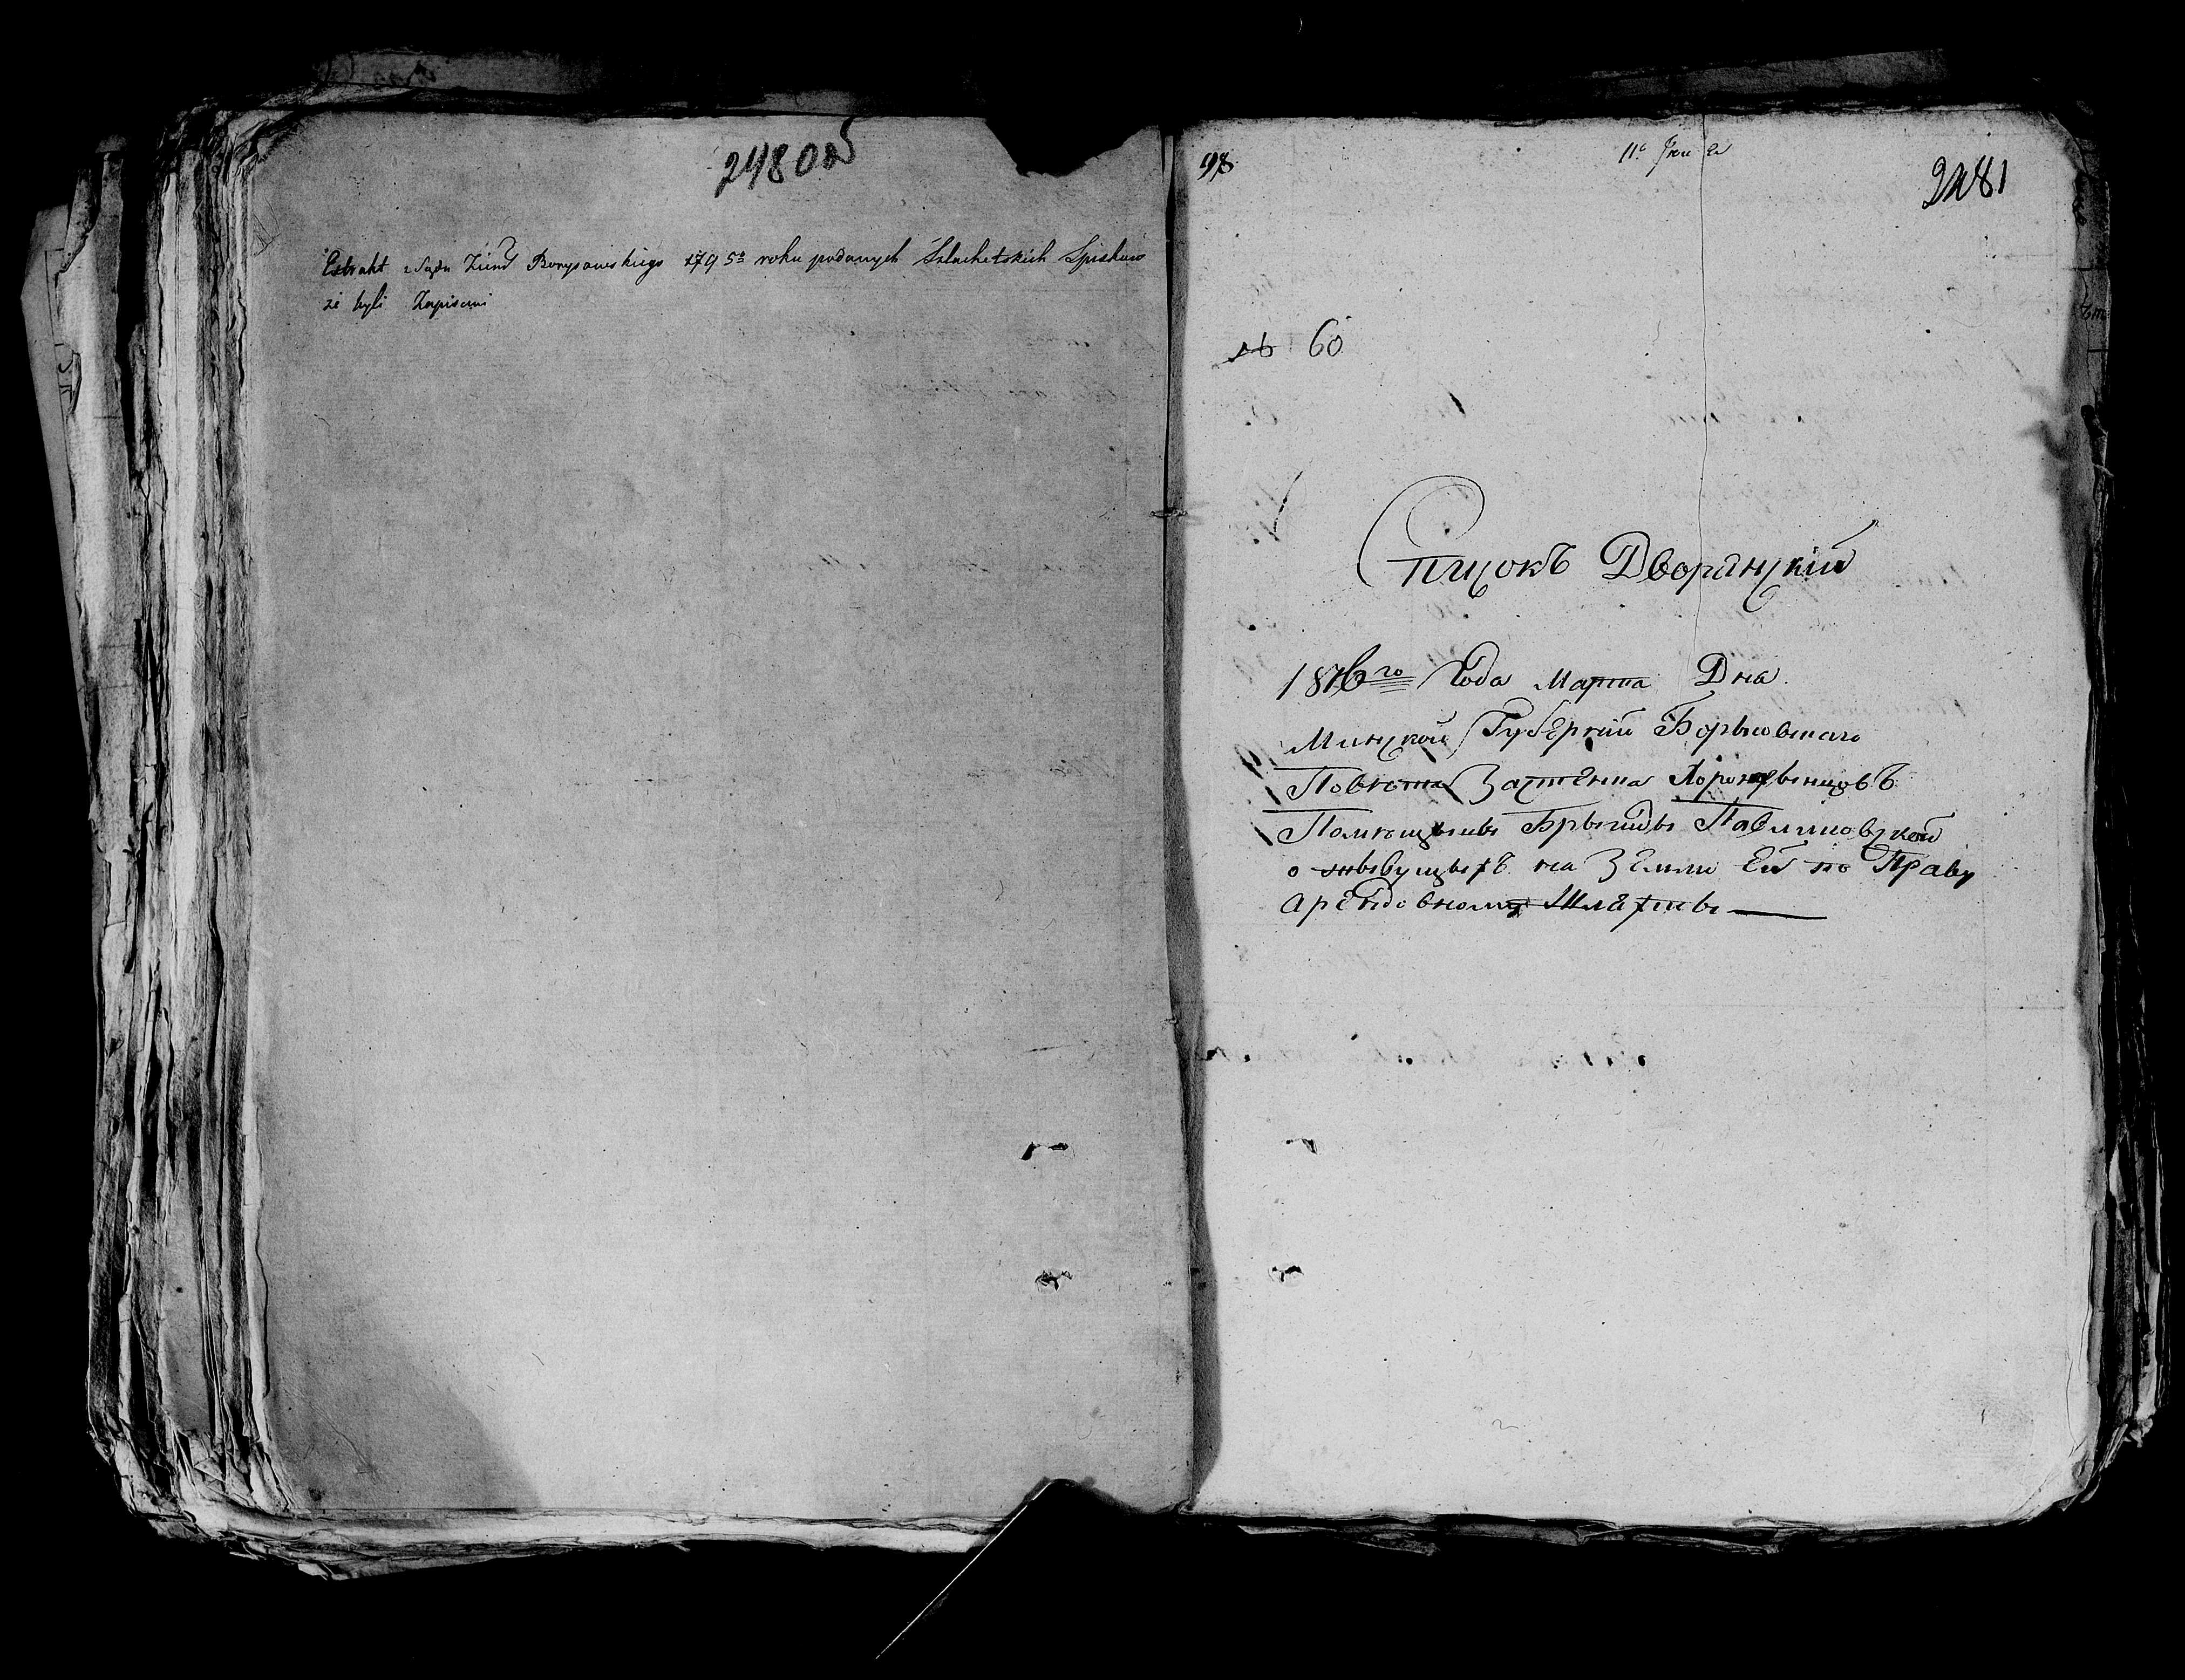 248 об
Extrakt z Sądu Ziemd Borysowskiego 1795º roku podanych Szlachetskich Spiskow
że byli Zapisani
98
2481
№ 60
Списокъ Дворянский
1816го Года Марта Дна
Минской Губернии Борысовскаго
Повета Застенка
Помещыцы Брыгиды Павликовской
о жывущыхъ на Земли Ей по Праву
арендовному Шляхты